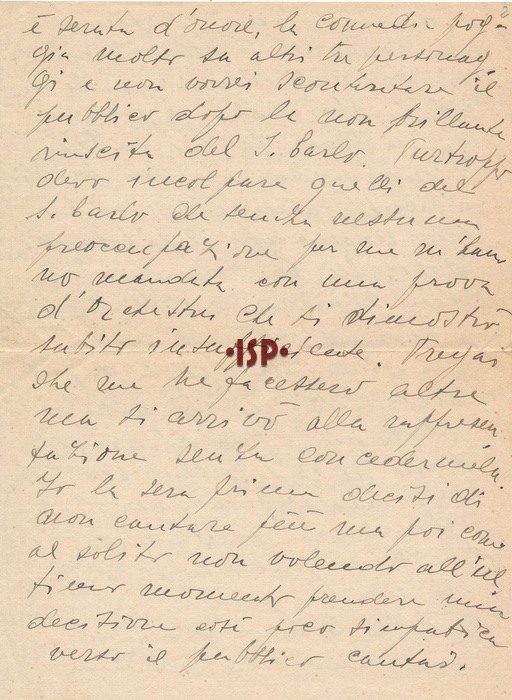 è serata d'onore, la commedia pog-
gia molto su altri tre personag
gi e non vorrei scontentare il
pubblico dopo la non brillante
riuscita del S. Carlo. Purtroppo
devo incolpare quelli del
S. Carlo che senza nessuna
preoccupazione per me m'han
no mandata con una prova
d'Orchestra che si dimostrò
subito insufficiente. Pregai
che me ne facessero altre
ma si arrivò alla rappresen
tazione senza concedermela.
Io la sera prima decisi di
non cantare più ma poi come
al solito non volendo all'ul
timo momento prendere una
decisione così poco simpatica
verso il pubblico cantai.
•ISP•